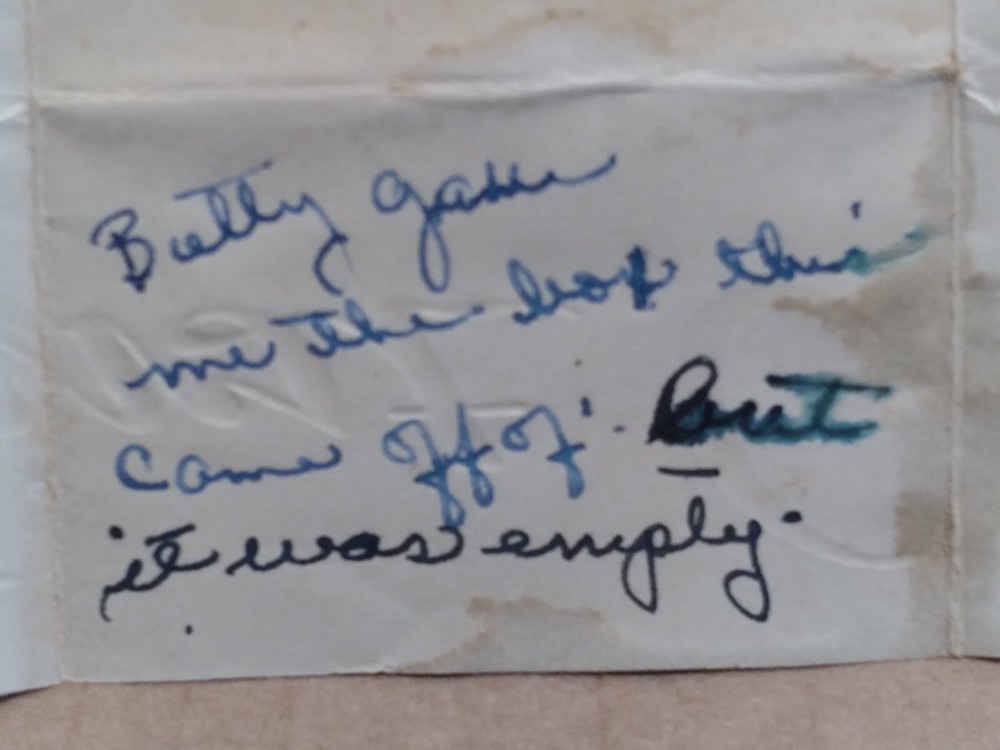 Betty gave
me the box this
came off of. But
it was empty.